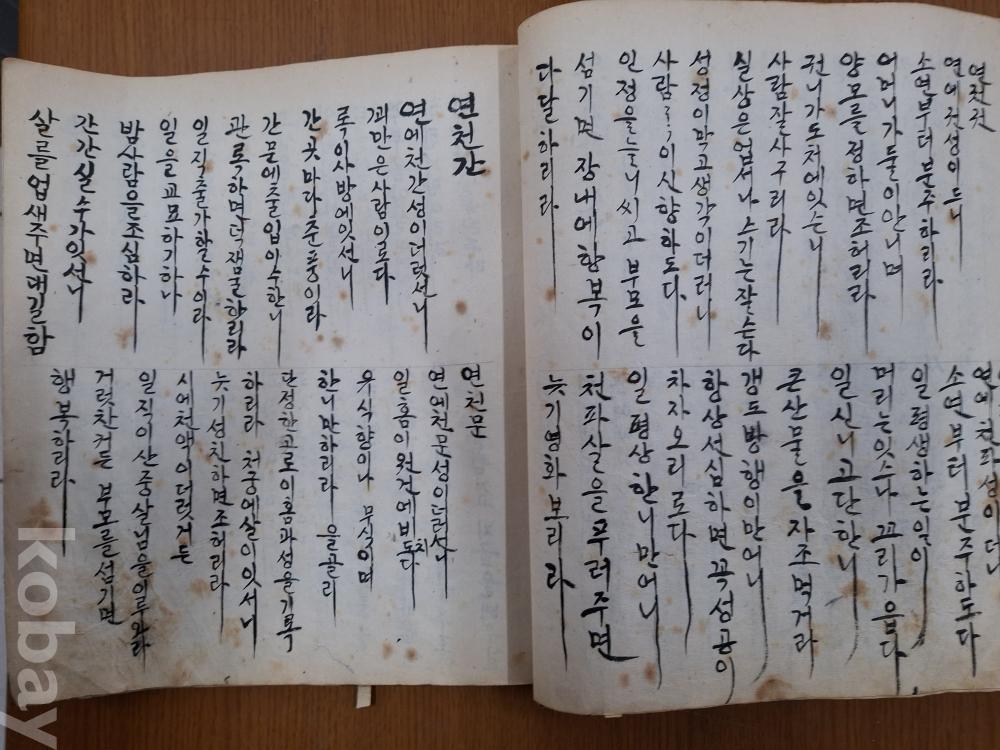 연천천
연에천성이드니
소년부터분주하리라
어머니가둘이안니며
양모를정하면조허리라
권니가도처에잇슨니
사람잘사구리라
실상은업서나 스기는잘슨다
성정이막고생각이더러니
사람마다이신항하도다
인정을눌니씨고 부모을
섬기면 장내에항복이
다달하리라
연에천파성이 더니
소년부터 분주하도다
일평생하는일이
머리는잇스나 꼬리가읍다
일신니고단한니
큰산물을 자조먹거라
갱도방행이만어니
항상선심하면 꼭성공이
차자오리로다
일평상 한니만어니
천파살을 푸러주면
늣기영화보리라
연천간
연에천간성이더럿선니
꾀만은사람이로다
록이사방에잇선니
간곳마다춘풍이라
간문에출입아수한니
관록하며덕재물하리라
일직출가할수이라
일을교묘하기하나
밤사람을조심하라
간간실수가잇서니
살를업새주면대길함
연천문
연에천문성이드럿서니
일홈이원건에비치도다
유식함이나 무식이며
한니만하리라 을골리
단정한고로이홈과성을기록
하리라 천중에살이잇서니
늣기성친하면조허리라
시에천액이더럿거든
일직이산중살님을이루와라
거럿찬커든 부모를섬기면
행복하리라
kobay